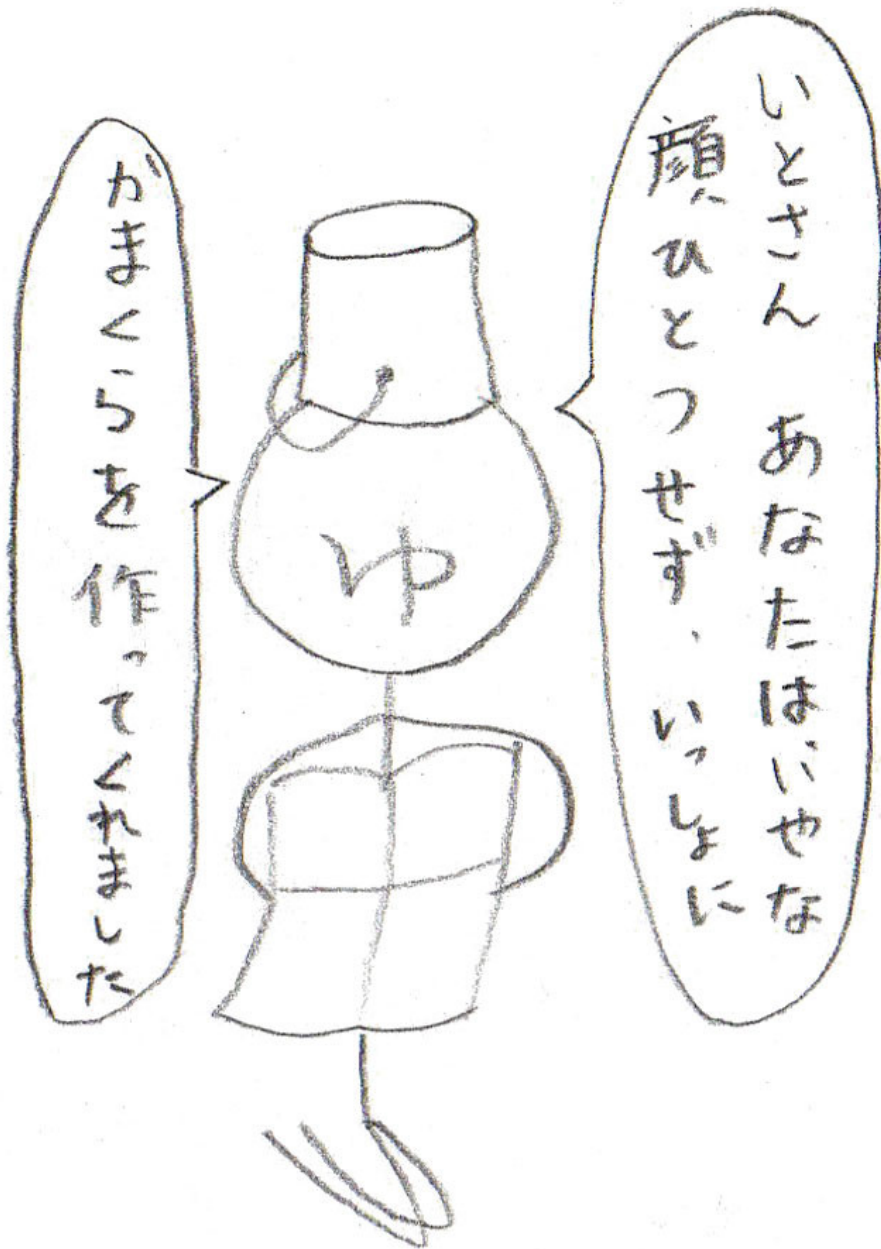 いとさん あなたはいやな
顔ひとつせず、いっしょに
ゆ
かまくらを作ってくれました